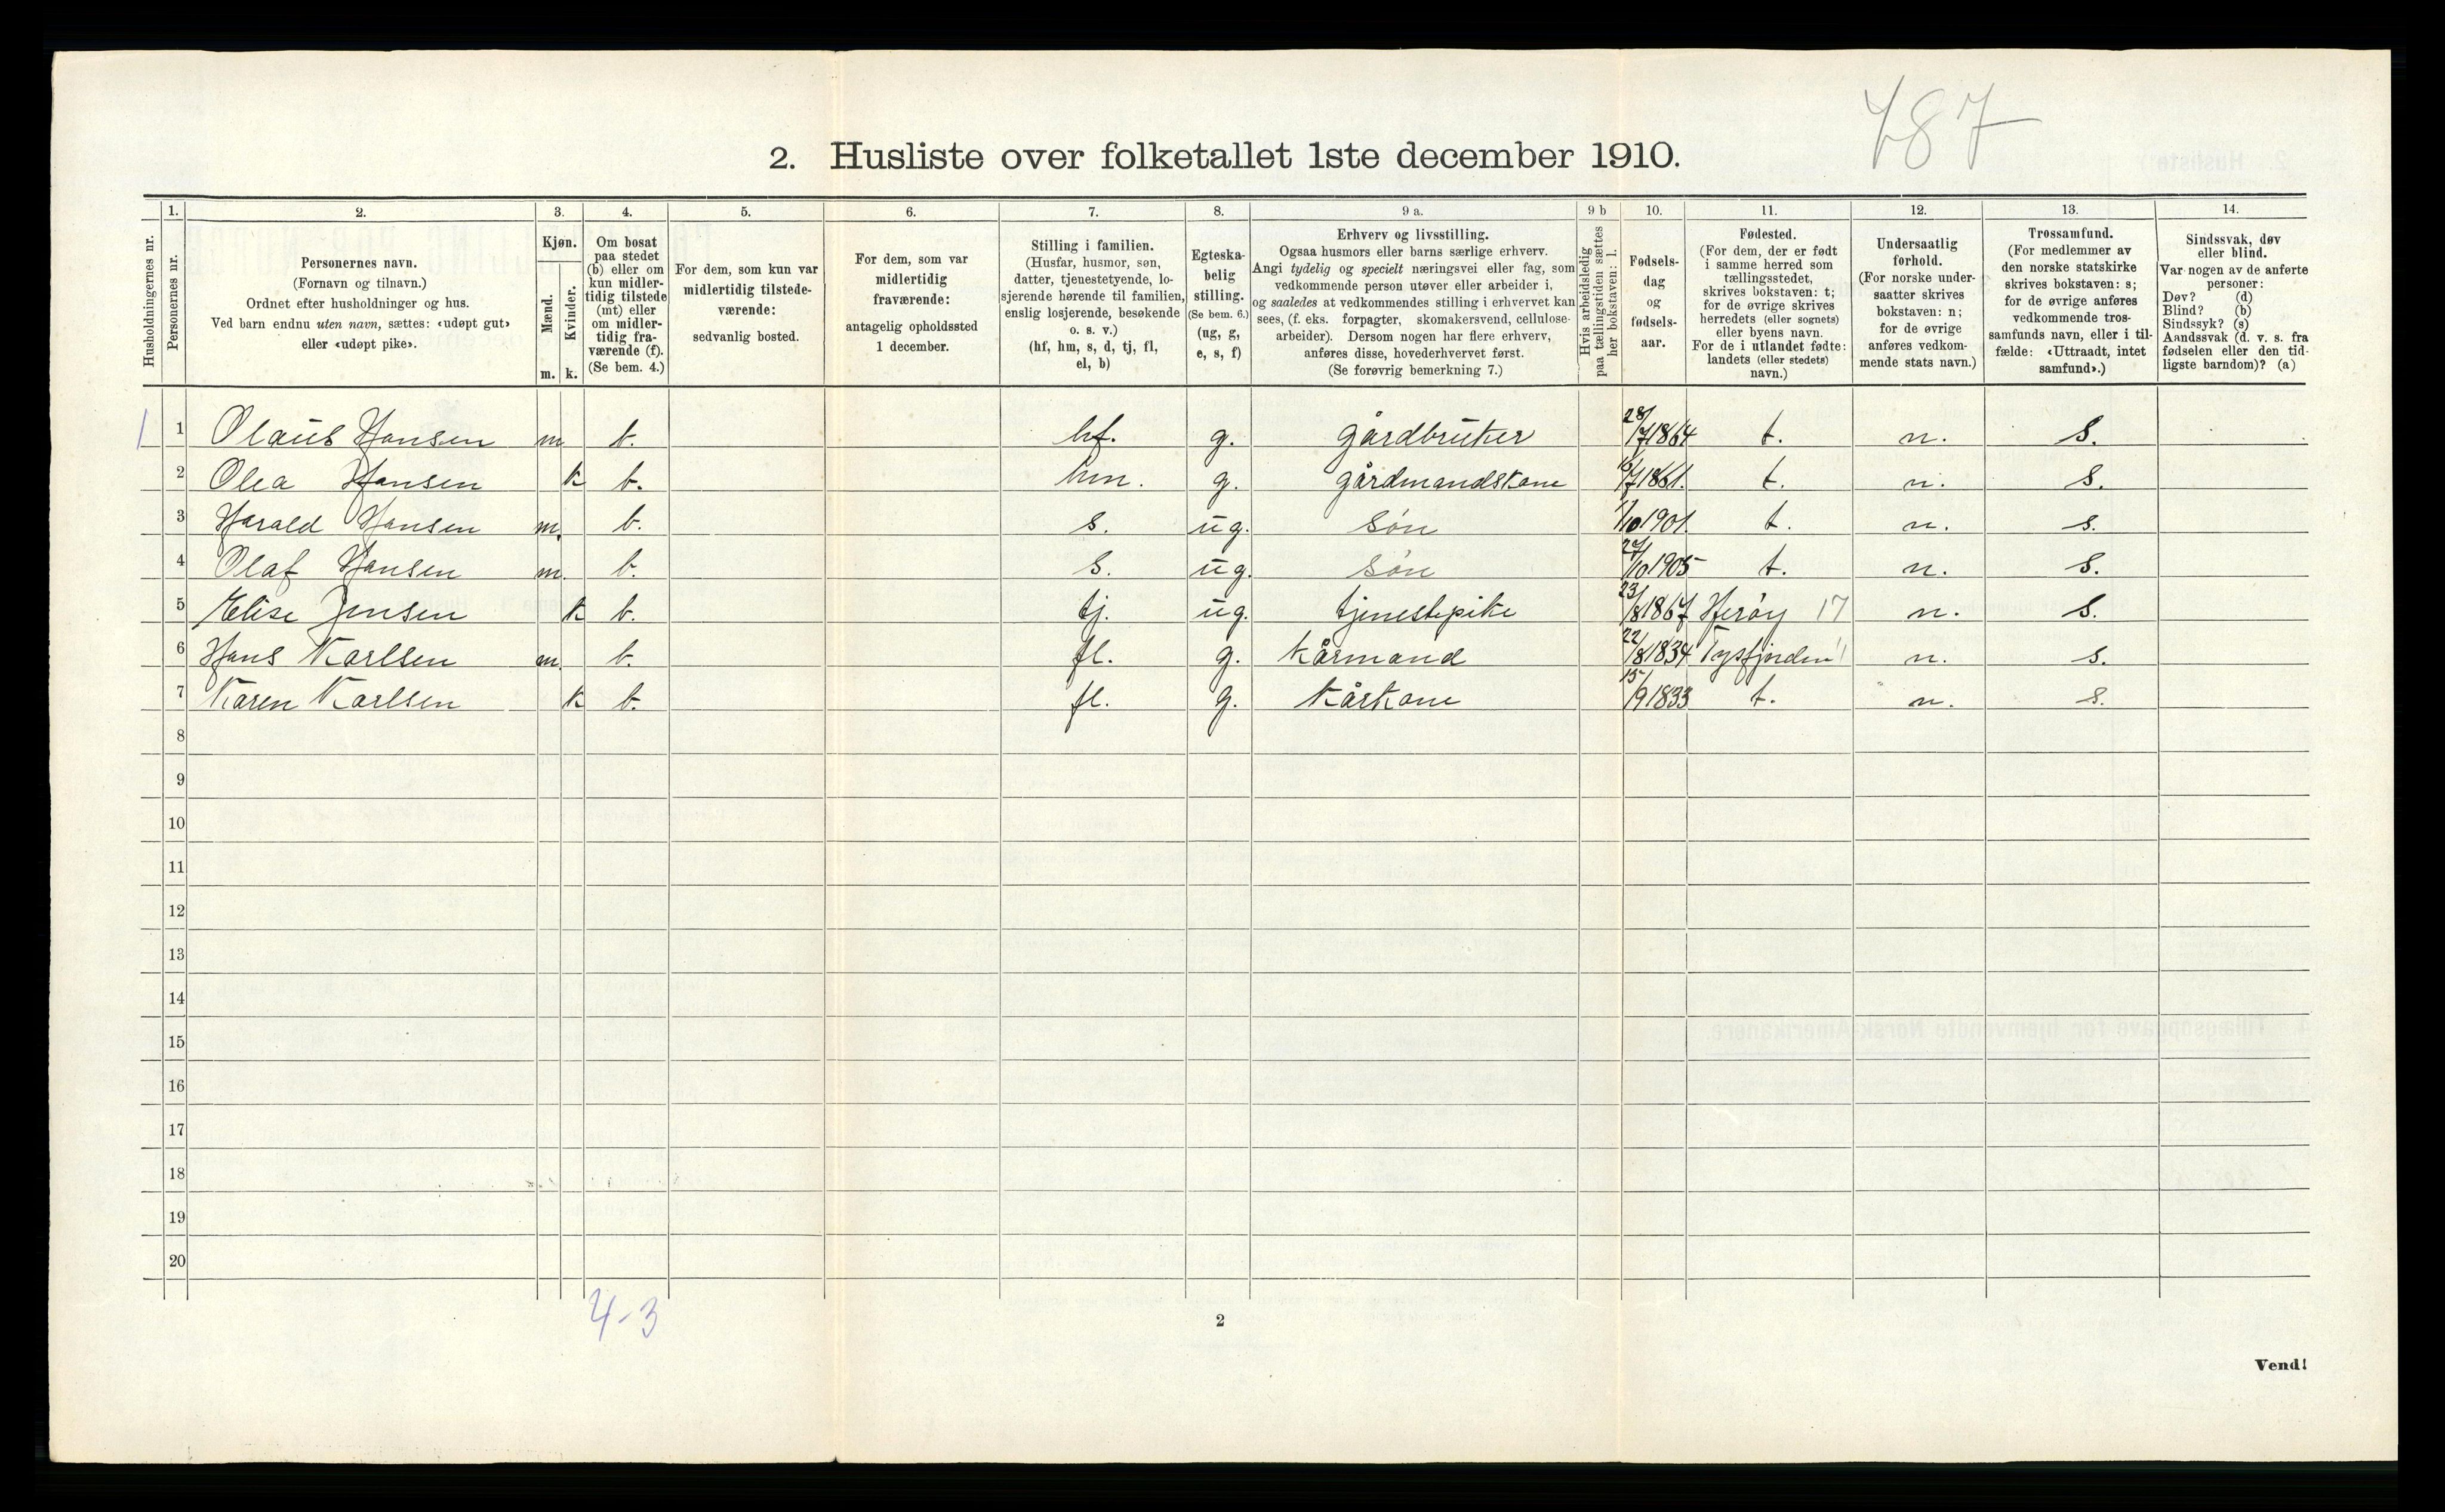 787
2. Husliste over folketallet 1ste december 1910.
Husholdningernes nr.
1. Personernes nr.
2. Personernes navn. (Fornavn og tilnavn.) Ordnet efter husholdninger og hus. Ved barn endnu uten navn, sættes: «udøpt gut» eller «udøpt pike».
3. Kjøn. Mænd. m. Kvinder. k.
4. Om bosat paa stedet (b) eller om kun midlertidig tilstede (mt) eller om midlertidig fraværende (f). (Se bem. 4.)
5. For dem, som kun var midlertidig tilstedeværende: sedvanlig bosted.
6. For dem, som var midlertidig fraværende: antagelig opholdssted 1 december.
7. Stilling i familien. (Husfar, husmor, søn, datter, tjenestetyende, losjerende hørende til familien, enslig losjerende, besøkende o. s. v.) (hf, hm, s, d, tj, fl, el, b)
8. Egteskabelig stilling. (Se bem. 6.) (ug, g, e, s, f)
9 a. Erhverv og livsstilling. Ogsaa husmors eller barns særlige erhverv. Angi tydelig og specielt næringsvei eller fag, som vedkommende person utøver eller arbeider i, og saaledes at vedkommendes stilling i erhvervet kan sees, (f. eks. forpagter, skomakersvend, cellulosearbeider). Dersom nogen har flere erhverv, anføres disse, hovederhvervet først. (Se forøvrig bemerkning 7.)
9 b Hvis arbeidsledig paa tællingstiden sættes her bokstaven: l.
10. Fødselsdag og fødselsaar.
11. Fødested. (For dem, der er født i samme herred som tællingsstedet, skrives bokstaven: t; for de øvrige skrives herredets (eller sognets) eller byens navn. For de i utlandet fødte: landets (eller stedets) navn.)
12. Undersaatlig forhold. (For norske undersaatter skrives bokstaven: n; for de øvrige anføres vedkommende stats navn.)
13. Trossamfund. (For medlemmer av den norske statskirke skrives bokstaven: s; for de øvrige anføres vedkommende trossamfunds navn, eller i tilfælde: «Uttraadt, intet samfund».)
14. Sindssvak, døv eller blind. Var nogen av de anførte personer: Døv? (d) Blind? (b) Sindssyk? (s) Aandssvak (d. v. s. fra fødselen eller den tidligste barndom)? (a)
1 1 Olaus Hansen m b. hf. g. gårdbruker 28/7 1864 t. n. s.
2 Olea Hansen k b. hm. g. gårdmandskone 16/7 1861. t. n. s.
3 Harald Hansen m. b. s. ug. søn 1/10 1901. t. n. s.
4 Olaf Hansen m. b. s. ug. søn 27/10 1905 t. n. s.
5 Elise Jensen k b. tj. ug. tjenestepike 23/8 1867 Herøy 17 n. s.
6 Hans Karlsen m. b. fl. g. kårmand 22/8 1834 Tysfjorden n. s.
7 Karen Karlsen k b. fl. g. kårkone 15/9 1833 t. n. s.
8
9
10
11
12
13
14
15
16
17
18
19
20
4-3
2
Vend!